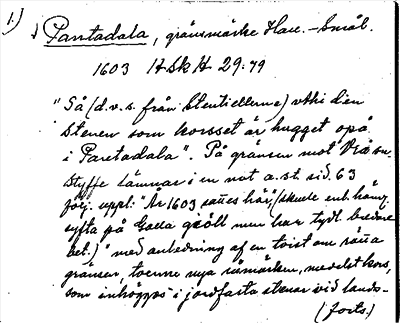 1.)
Pantadala, gränsmärke Hall.-Smål.
1603 HSkH 29:79
"Så (d.v.s. från Stentiellerne) vthi den
stenen som korsset är hugget opå
i Pantadala". På gränsen mot
Styffe lämnar i en not a.st. sid. 63
följ. uppl: "År 1603 (skulle enl. häng.
syfta på Galla giöll men har tydl.
bet.) "med anledning af en tvist om rätta
gränsen, tvenne nya råmärken, medelst kors,
som inhöggos i jordfasta stenar vid lands-
(forts.)